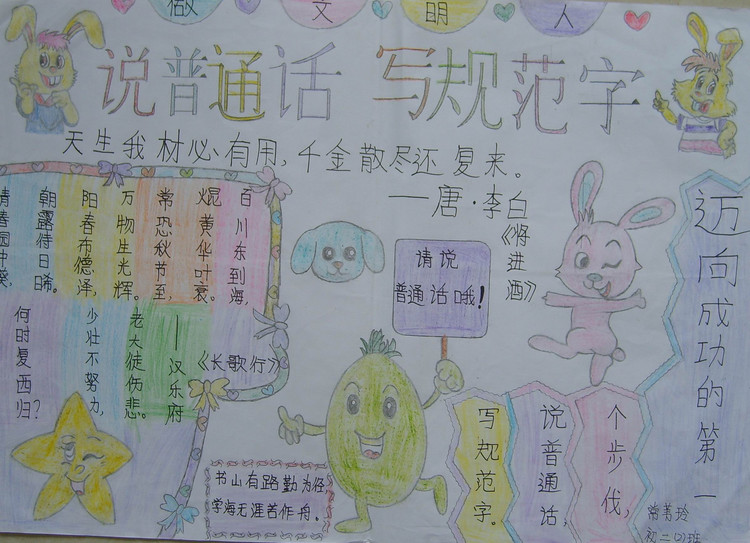 做 文 明 人
说普通话 写规范字
天生我材必有用，千金散尽还复来。
——唐·李白
《将进酒》
朝露侍日晞。
阳春布德泽，
万物生光辉。
常恐秋节至，
焜黄华叶衰。
百川东到海，
何时复西归？
少壮不努力，
老大徒伤悲。
——汉乐府
《长歌行》
请说
普通话哦！
迈向成功的第一
个步伐，
说普通话，
写规范字。
书山有路勤为径，
学海无涯苦作舟。